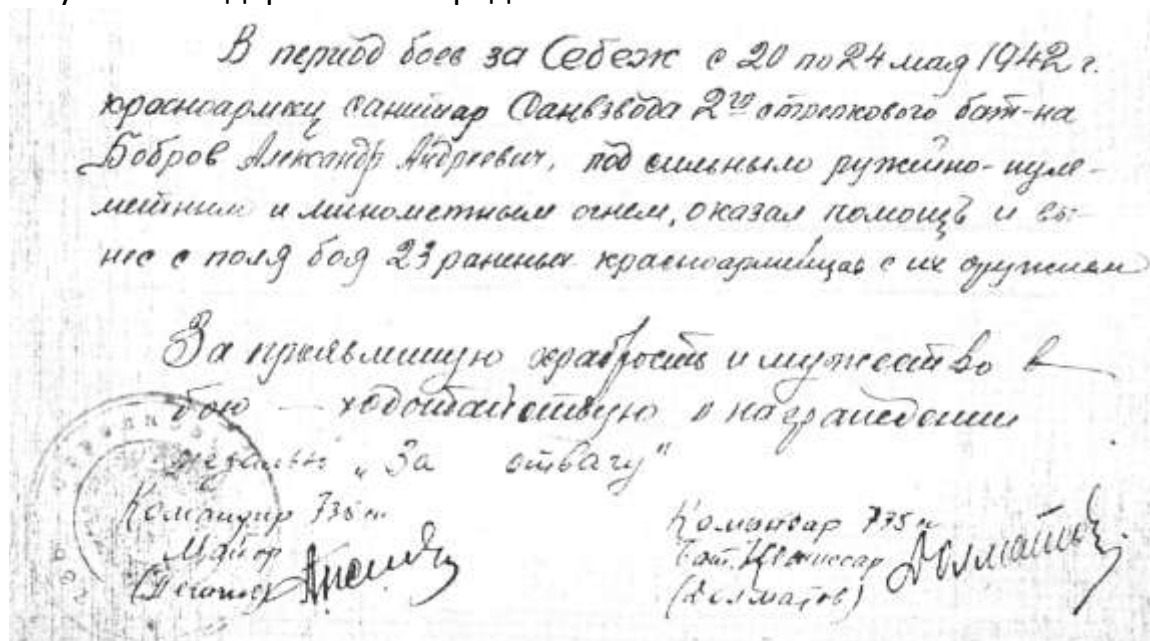 В период боев за Себеж с 20 по 24 мая 1942 г.
красноармиец санитар Санвзвода 2го стрелкового бат-на
Бобров Александр Андреевич, под сильным ружейно-пуле-
метным и минометным огнем, оказал помощь и вы-
нес с поля боя 23 раненых красноармейцев с их оружием
За проявившую храбрость и мужество в
бою — ходотайствую о награждении
медалью „За отвагу"
Командир 735 сп
Майор
Комиссар 735 сп
Бат. Комиссар
(Долматов)